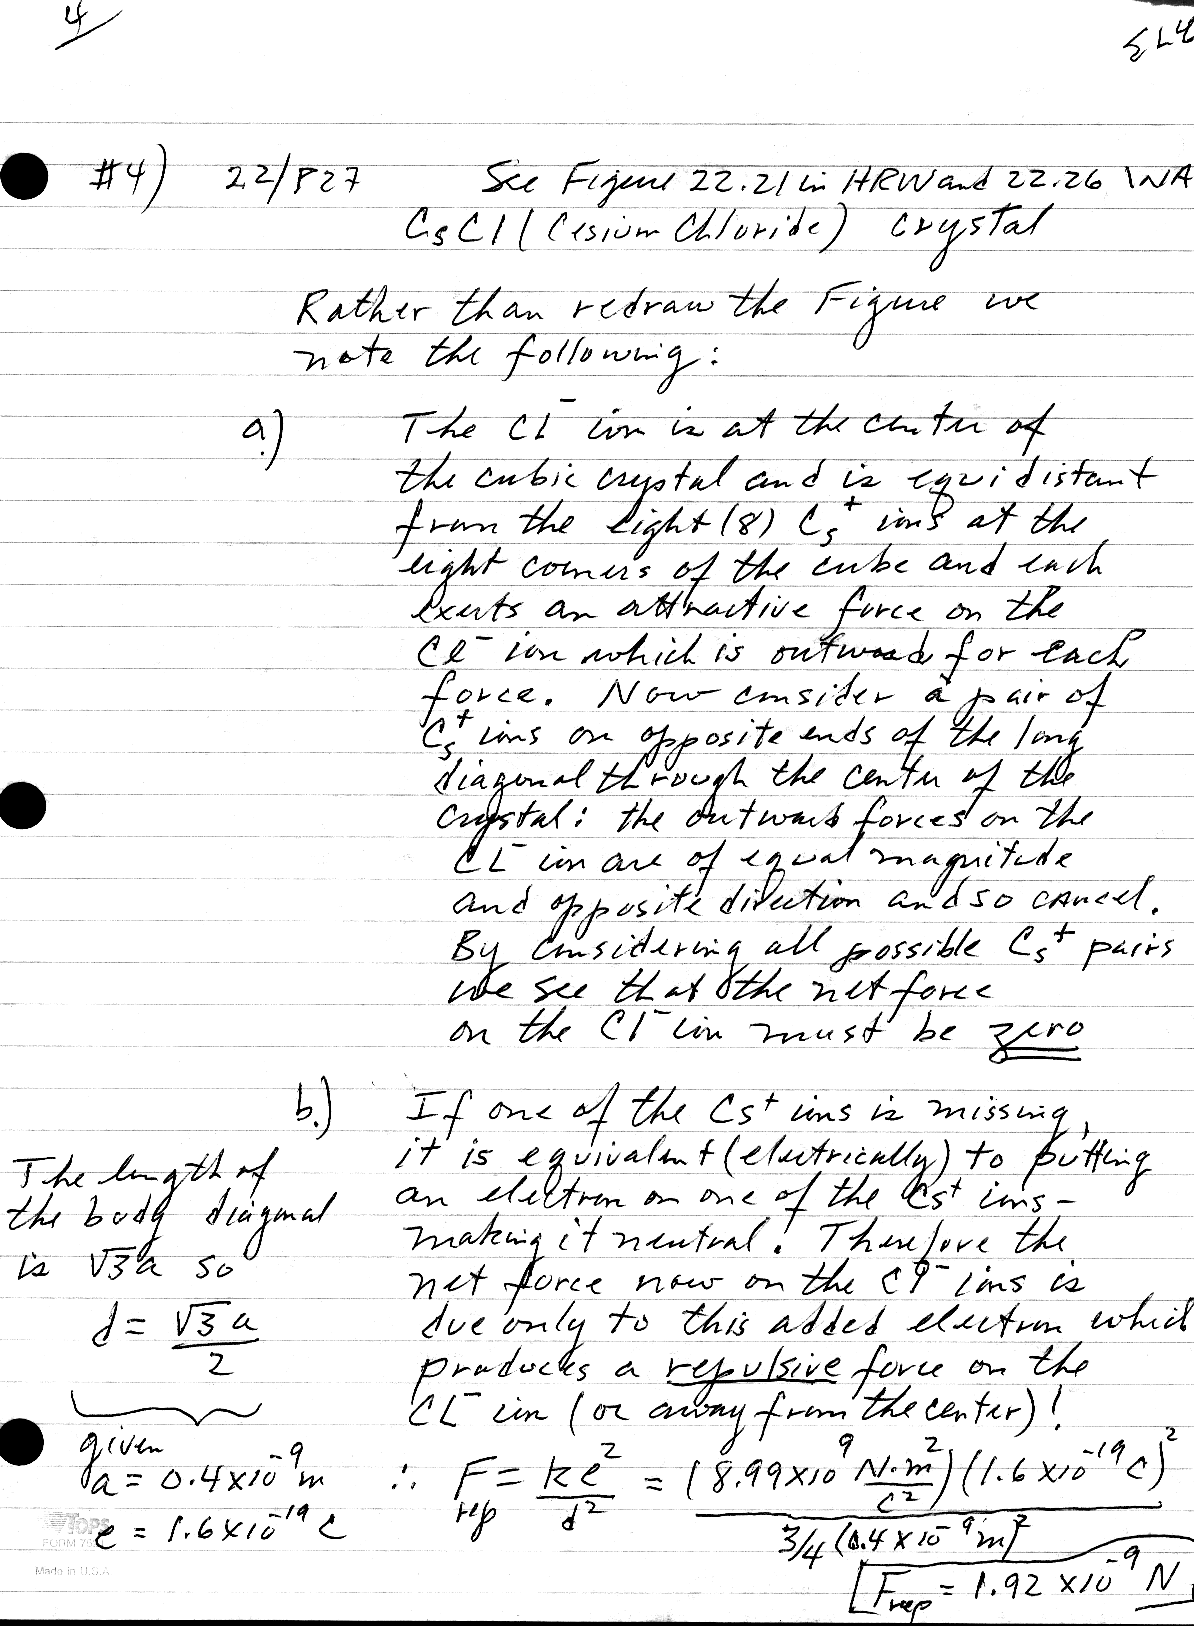 4
#4) 22/P27 See Figure 22.21 in HRW and 22.26 WA
CsCl (Cesium Chloride) crystal
Rather than redraw the Figure we
note the following:
a.) The Cl⁻ ion is at the center of
the cubic crystal and is equidistant
from the eight (8) Cs⁺ ions at the
eight corners of the cube and each
exerts an attractive force on the
Cl⁻ ion which is outward for each
force. Now consider a pair of
Cs⁺ ions on opposite ends of the long
diagonal through the center of the
crystal: the outward forces on the
Cl⁻ ion are of equal magnitude
and opposite direction and so cancel.
By considering all possible Cs⁺ pairs
we see that the net force
on the Cl⁻ ion must be zero
b.) If one of the Cs⁺ ions is missing,
it is equivalent (electrically) to putting
an electron on one of the Cs⁺ ions -
making it neutral! Therefore the
net force now on the Cl⁻ ions is
due only to this added electron which
produces a repulsive force on the
Cl⁻ ion (or away from the center)!
The length of
the body diagonal
is √3a so
d = √3 a / 2
given
a = 0.4 x 10⁻⁹ m
e = 1.6 x 10⁻¹⁹ C
∴ F_rep = ke²/d² = (8.99 x 10⁹ N·m²/C²)(1.6 x 10⁻¹⁹ C)² / 3/4 (0.4 x 10⁻⁹ m)²
F_rep = 1.92 x 10⁻⁹ N
TOPS
FORM
Made in U.S.A.